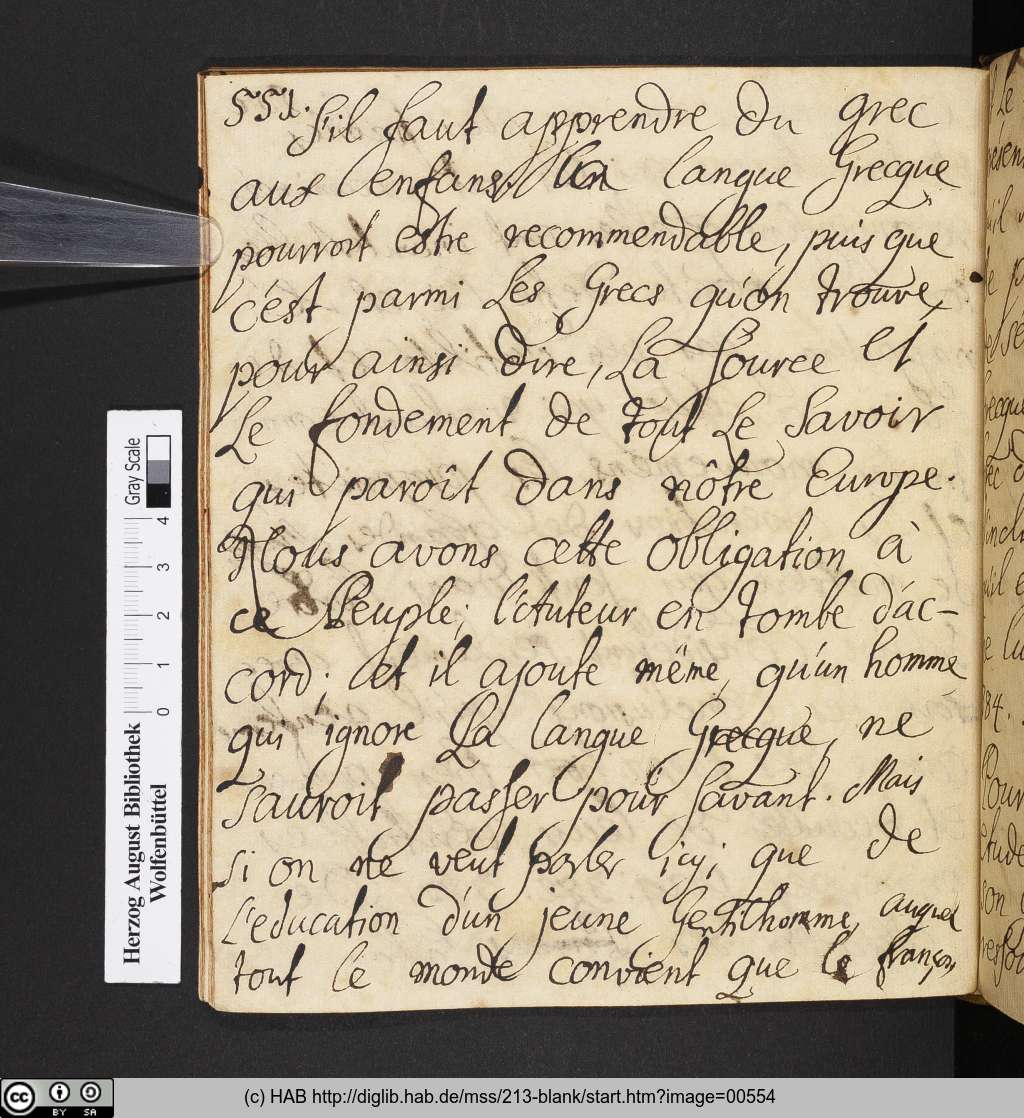 551.
S'il faut apprendre du grec
aux enfans. La langue Grecque
pourroit estre recommendable, puis que
c'est parmi Les Grecs qu'on trouve,
pour ainsi dire, La source et
Le fondement de tout Le Savoir
qui paroît dans nôtre Europe.
Nous avons cette obligation à
ce Peuple; l'Auteur en tombe d'ac-
cord; et il ajoute même, qu'un homme
qui ignore La langue Grecque, ne
sauroit passer pour savant. Mais
si on ne veut parler icy, que de
L'education d'un jeune Gentilhomme, auquel
tout le monde convient que le françois
Herzog August Bibliothek
Wolfenbüttel
Gray Scale
0 1 2 3 4
(c) HAB http://diglib.hab.de/mss/213-blank/start.htm?image=00554
cc BY SA